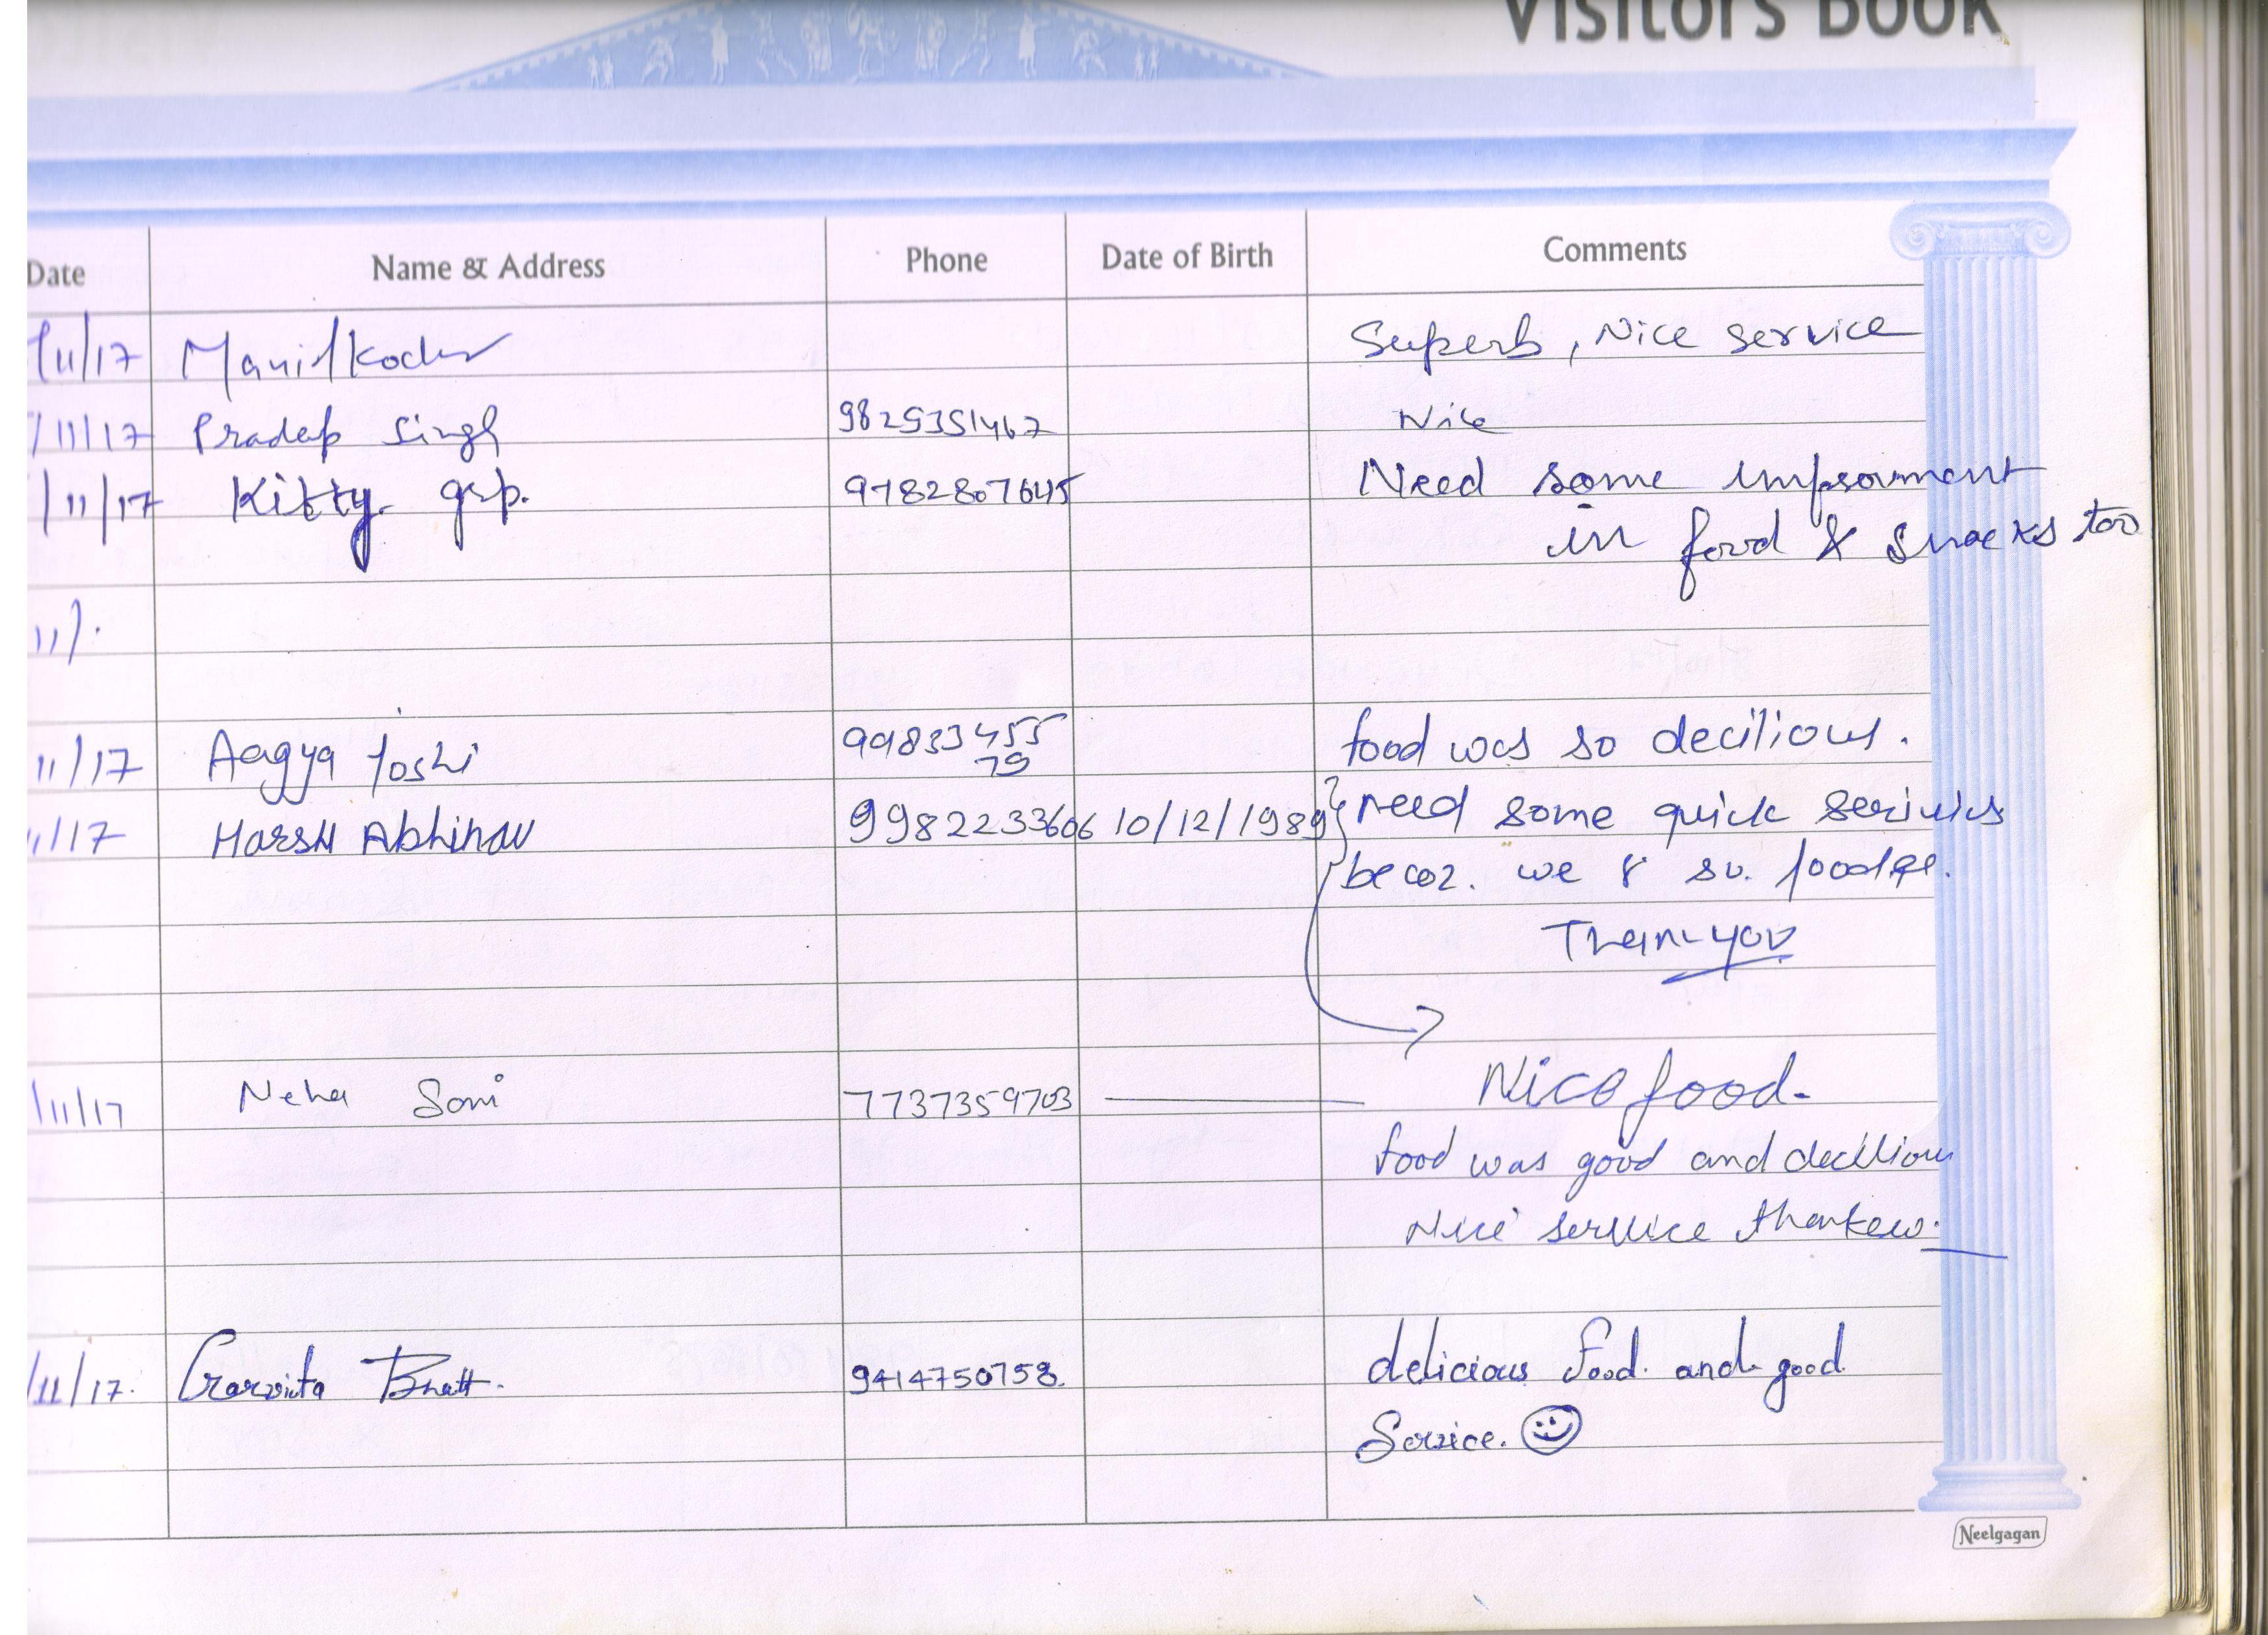 VISITORS BOOK
Date Name & Address Phone Date of Birth Comments
/11/17 Superb, Nice service
/11/17 Pradeep Singh 9825351467 Nice
/11/17 Kitty grp. 9782807645 Need some imporvment
in food & snacks too
11/.
11/17 Aagya Joshi 99833455 food was so decilious.
79
1/17 Harsh Abhinav 9982233606 10/12/1989 need some quick
becoz. we r so.
Thank you
/11/17 Neha Soni 7737359703 Nice food.
food was good and decilious
Nice service thankew.
/11/17. Garvita Bhatt. 9414750758. delicious food. and good
Service. ☺
Neelgagan